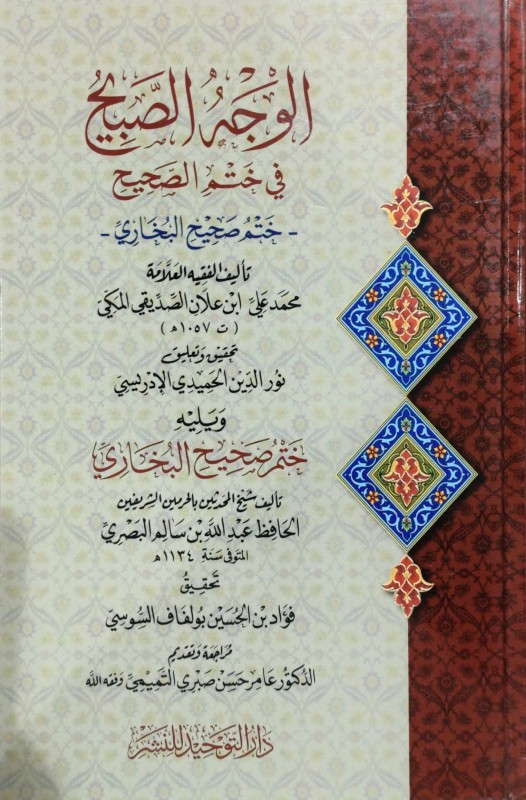 الوَجْهُ الصَّبِيحُ
فِي خَتْمِ الصَّحِيحِ
- خَتْمُ صَحِيْحِ البُخَارِيِّ -
تأليف الفقيه العلَّامة
محمد علي ابن علان الصديقي المكي
(ت ١٠٥٧ هـ)
تحقيق وتعليق
نور الدين الحميدي الإدريسي
وَيَلِيْهِ
خَتْمُ صَحِيْحِ البُخَارِيِّ
تأليف شيخ المحدثين بالحرمين الشريفين
الحافظ عبد الله بن سالم البصري
المتوفى سنة ١١٣٤ هـ
تَحْقِيقُ
فؤاد بن الحسين بولفاف السوسي
مراجعة وتقديم
الدكتور عامر حسن صبري التميمي وفقه الله
دار التوحيد للنشر